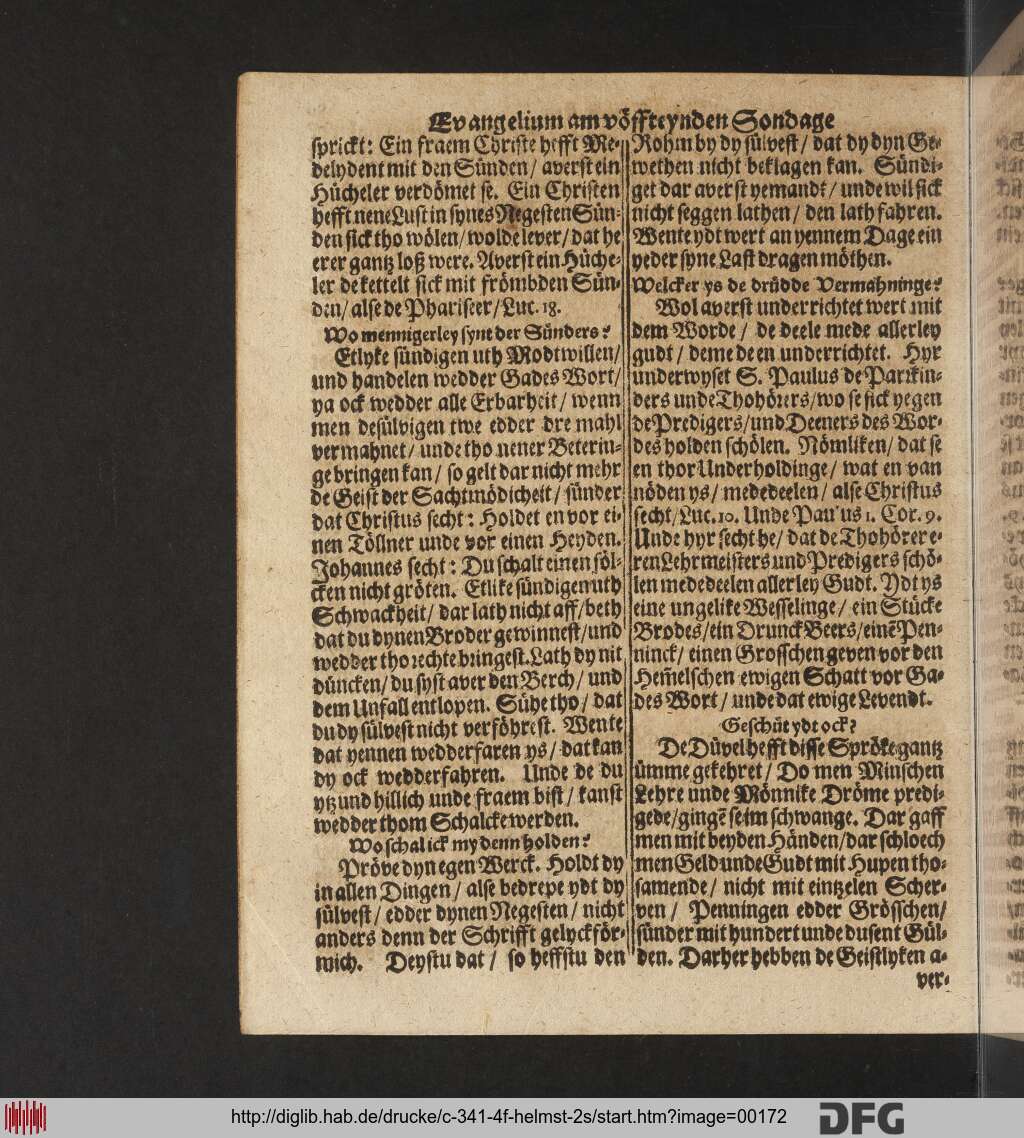 Evangelium am vöffteynden Sondage
sprickt: Ein fraem Christe hefft Me-
delydent mit den Sünden / averst ein
Hücheler verdömet se. Ein Christen
hefft nene Lust in synes Negesten Sün-
den sick tho wölen / wolde lever / dat he
erer gantz loß were. Averst ein Hüche-
ler de kettelt sick mit frömbden Sün-
den / alse de Phariseer / Luc. 18.
Wo mennigerley synt der Sünders?
Etlyke sündigen uth Modtwillen /
und handelen wedder Gades Wort /
ya ock wedder alle Erbarheit / wenn
men desülvigen twe edder dre mahl
vermahnet / unde tho nener Beterin-
ge bringen kan / so gelt dar nicht mehr
de Geist der Sachtmödicheit / sünder
dat Christus secht: Holdet en vor ei-
nen Töllner unde vor einen Heyden.
Johannes secht: Du schalt einen söl-
cken nicht gröten. Etlike sündigen uth
Schwackheit / dar lath nicht aff / beth
dat du dynen Broder gewinnest / und
wedder tho rechte bringest. Lath dy nit
düncken / du syst aver den Berch / und
dem Unfall entlopen. Sühe tho / dat
du dy sülvest nicht verföhrest. Wente
dat yennen wedderfaren ys / dat kan
dy ock wedderfahren. Unde de du
ytzund hillich unde fraem bist / kanst
wedder thom Schalcke werden.
Wo schal ick my denn holden?
Pröve dyn egen Werck. Holdt dy
in allen Dingen / alse bedrepe ydt dy
sülvest / edder dynen Negesten / nicht
anders denn der Schrifft gelyckför-
mich. Deystu dat / so heffstu den
Rohm by dy sülvest / dat dy dyn Ge-
wethen nicht beklagen kan. Sündi-
get dar averst yemandt / unde wil sick
nicht seggen lathen / den lath fahren.
Wente ydt wert an yennem Dage ein
yeder syne Last dragen möthen.
Welcker ys de drüdde Vermahninge?
Wol averst underrichtet wert mit
dem Worde / de deele mede allerley
gudt / deme de en underrichtet. Hyr
underwyset S. Paulus de Parrkin-
ders unde Thohörers / wo se sick yegen
de Predigers / und Deeners des Wor-
des holden schölen. Nömliken / dat se
en thor Underholdinge / wat en van
nöden ys / mededeelen / alse Christus
secht / Luc. 10. Unde Paulus 1. Cor. 9.
Unde hyr secht he / dat de Thohörer e-
ren Lehrmeisters und Predigers schö-
len mededeelen allerley Gudt. Ydt ys
eine ungelike Wesselinge / ein Stücke
Brodes / ein Drunck Beers / einē Pen-
ninck / einen Grosschen geven vor den
Hem̄elschen ewigen Schatt vor Ga-
des Wort / unde dat ewige Levendt.
Geschüt ydt ock?
De Düvel hefft disse Spröke gantz
ümme gekehret / Do men Minschen
Lehre unde Mönnike Dröme predi-
gede / gingē se im schwange. Dar gaff
men mit beyden Händen / dar schloech
men Geld unde Gudt mit Hupen tho-
samende / nicht mit eintzelen Scher-
ven / Penningen edder Grösschen /
sünder mit hundert unde dusent Gül-
den. Darher hebben de Geistlyken a-
ver-
http://diglib.hab.de/drucke/c-341-4f-helmst-2s/start.htm?image=00172
DFG